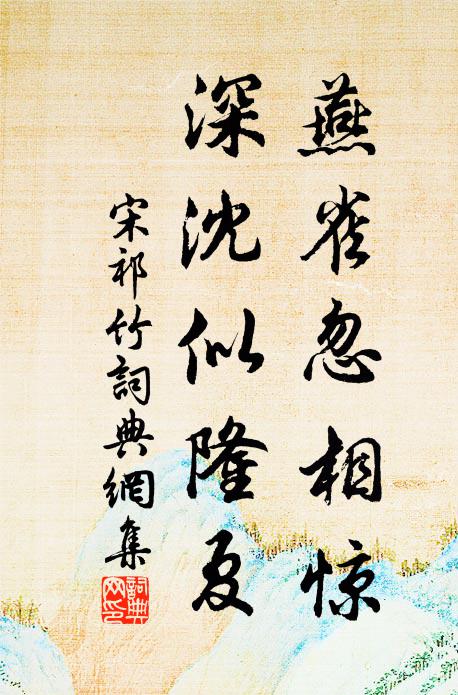 燕雀忽相惊
深沈似隆夏
宋祁竹詞典網集
詞典网印